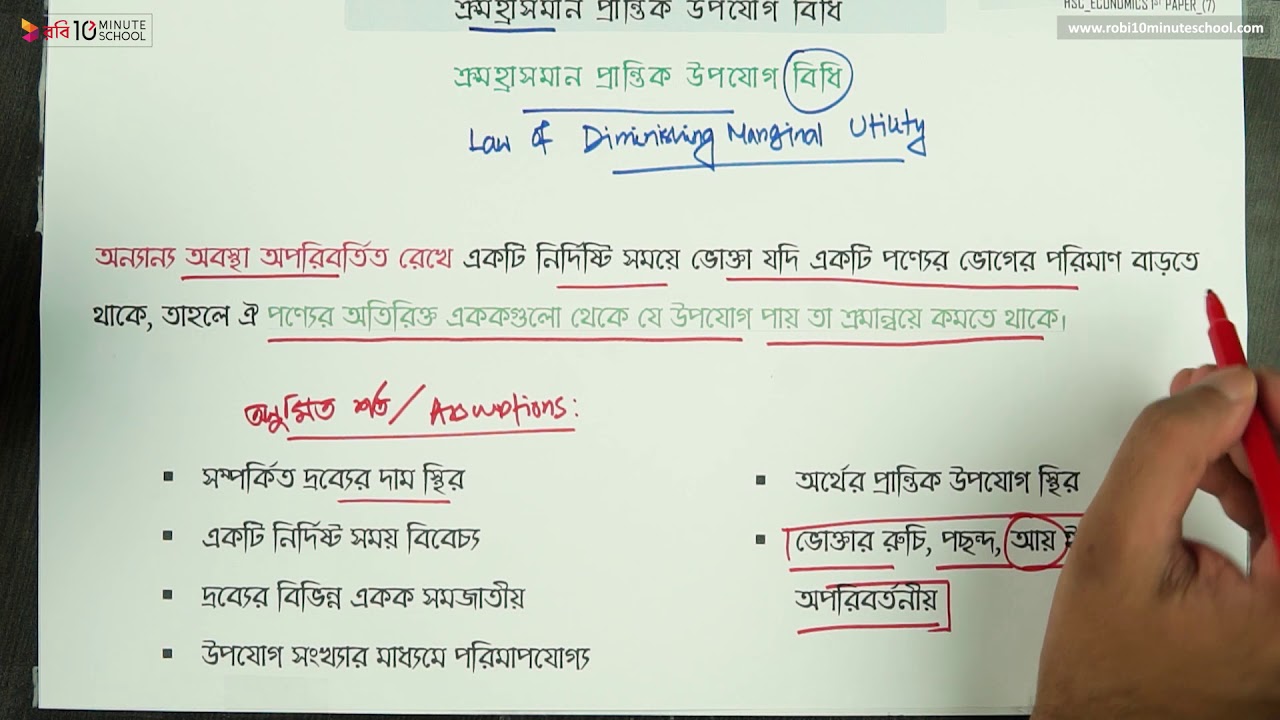 রবি 10 MINUTE SCHOOL
HSC_ECONOMICS 1st PAPER_(7)
www.robi10minuteschool.com
ক্রমহ্রাসমান প্রান্তিক উপযোগ বিধি
ক্রমহ্রাসমান প্রান্তিক উপযোগ বিধি
Law of Diminishing Marginal Utility
অন্যান্য অবস্থা অপরিবর্তিত রেখে একটি নির্দিষ্টি সময়ে ভোক্তা যদি একটি পণ্যের ভোগের পরিমাণ বাড়তে
থাকে, তাহলে ঐ পণ্যের অতিরিক্ত এককগুলো থেকে যে উপযোগ পায় তা ক্রমান্বয়ে কমতে থাকে।
অনুমিত শর্ত / Assumptions:
▪ সম্পর্কিত দ্রব্যের দাম স্থির
▪ একটি নির্দিষ্ট সময় বিবেচ্য
▪ দ্রব্যের বিভিন্ন একক সমজাতীয়
▪ উপযোগ সংখ্যার মাধ্যমে পরিমাপযোগ্য
▪ অর্থের প্রান্তিক উপযোগ স্থির
▪ ভোক্তার রুচি, পছন্দ, আয়
অপরিবর্তনীয়